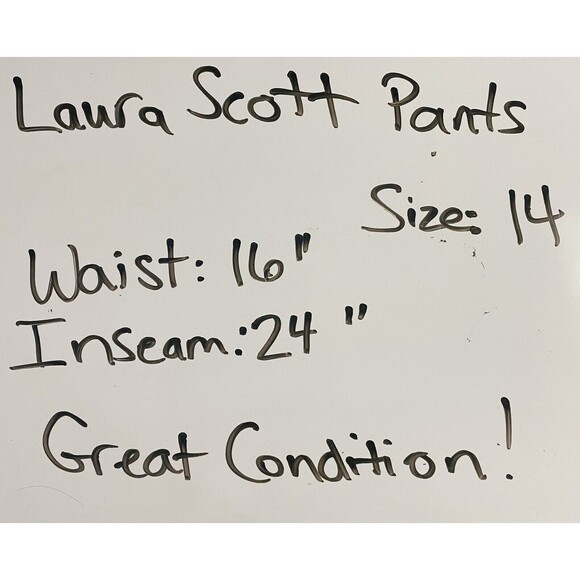 Laura Scott Pants
Size: 14
Waist: 16"
Inseam: 24"
Great Condition!